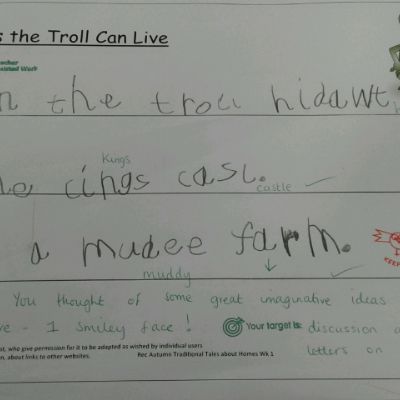 s the Troll Can Live
acher
isted Work
n the troll hidawt
Kings
le cings casl.
castle
a mudee farm.
muddy
KEEP
You thought of some great imaginative ideas
re - 1 smiley face! Your target is: discussion a
letters on
st, who give permission for it to be adapted as wished by individual users
n. about links to other websites. Rec Autumn Traditional Tales about Homes Wk 1